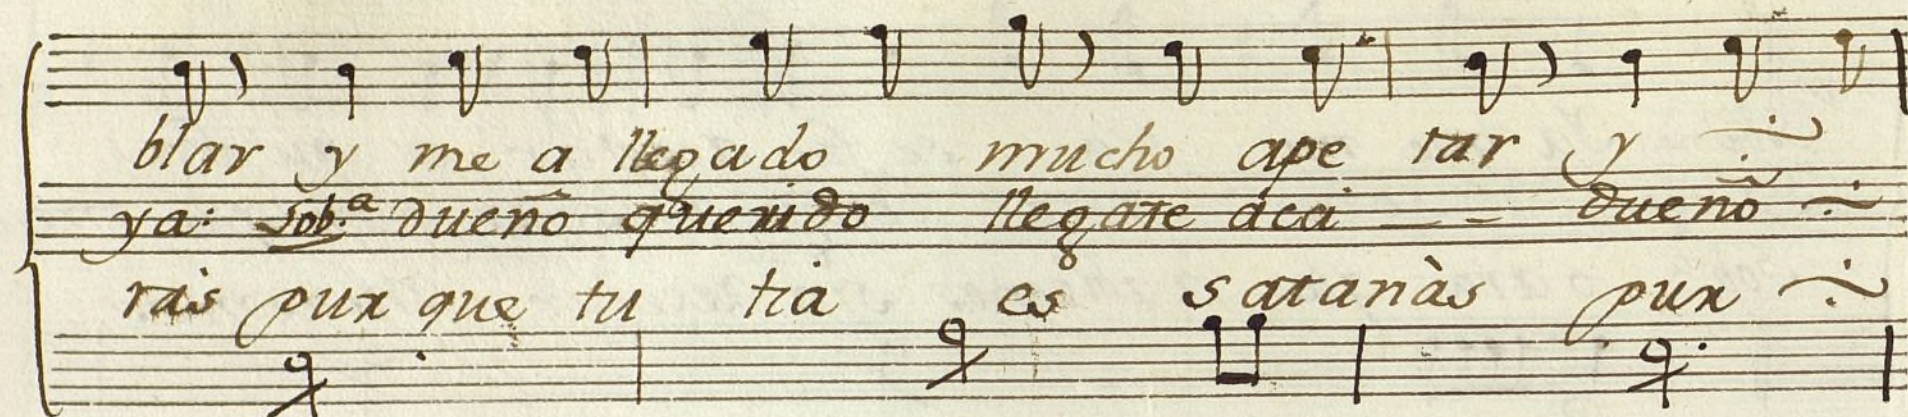 blar y me a llegado mucho ape tar y
ya: sob.ª dueño querido llegate acá dueño
ràs pux que tu tia es satanàs pux